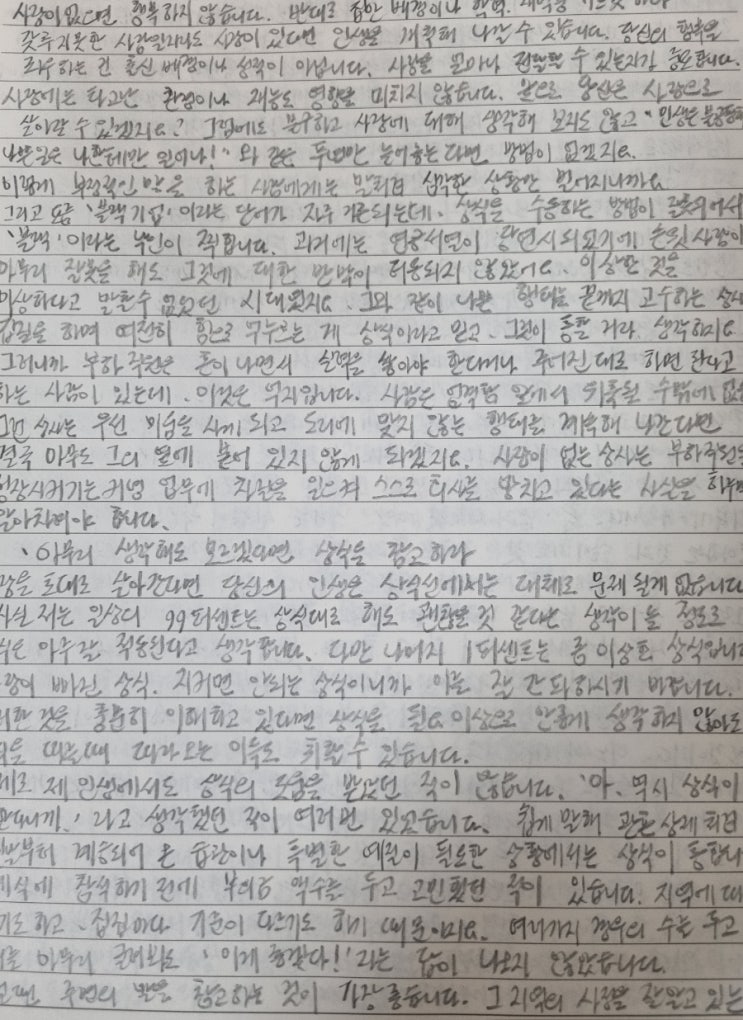 사랑이 없으면 행복하지 않습니다. 반대로 집안 배경이나 학력,
갖추지 못한 사람일지라도 사랑이 있다면 인생을 개척해 나갈 수 있습니다. 당신의 행복을
좌우하는 건 출신 배경이나 성적이 아닙니다. 사랑을 얼마나 전달할 수 있는지가 중요합니다.
사랑에는 타고난 환경이나 재능도 영향을 미치지 않습니다. 앞으로 당신은 사랑으로
살아갈 수 있겠지요? 그럼에도 불구하고 사랑에 대해 생각해 보지도 않고 "인생은 불공평해
나쁜 일은 나한테만 일어나!" 와 같은 푸념만 늘어놓는다면 방법이 없겠지요.
이렇게 부정적인 말을 하는 사람에게는 막혀버 심각한 상황만 벌어지니까요
그리고 요즘 '블랙기업' 이라는 단어가 자주 거론되는데, 상식을 수용하는 방법이 잘못되어서
'블랙' 이라는 낙인이 찍힙니다. 과거에는 연공서열이 당연시 되었기에 손윗사람이
아무리 잘못을 해도 그것에 대한 반박이 허용되지 않았어요. 이상한 것을
이상하다고 말할 수 없었던 시대였지요. 그와 같이 나쁜 행태를 끝까지 고수하는 상사
갑질을 하며 여전히 힘으로 짓누르는 게 상식이라고 믿고, 그것이 통할 거라 생각하지요
그러니까 부하 직원은 혼이 나면서 실력을 쌓아야 한다거나 주어진 대로 하면 된다고
하는 사람이 있는데, 이것은 억지입니다. 사람은 엄격함 앞에서 위축될 수밖에 없
그런 상사는 우선 미움을 사게 되고 도리에 맞지 않는 행태를 계속해 나간다면
결국 아무도 그의 옆에 붙어 있지 않게 되겠지요. 사랑이 없는 상사는 부하직원을
성장시키기는커녕 업무에 차질을 일으켜 스스로 회사를 망치고 있다는 사실을 하루
알아차려야 합니다.
、아무리 생각해도 모르겠다면 상식을 참고하라
랑을 토대로 살아간다면 당신의 인생은 상식선에서는 대체로 문제 될게 없습니다
사실 저는 일상의 99퍼센트는 상식대로 해도 괜찮을 것 같다는 생각이 들 정도로
식은 아주 잘 적용된다고 생각합니다. 다만 나머지 1퍼센트는 좀 이상한 상식입니
랑이 빠진 상식. 지키면 안되는 상식이니까 이를 잘 간파하시기 바랍니다.
러한 것을 충분히 이해하고 있다면 상식을 필요 이상으로 안좋게 생각하지 않아도
식을 따를때 따라오는 이득도 취할 수 있습니다.
제로 제 인생에서도 상식의 도움을 받았던 적이 많습니다. '아, 역시 상식이
한다니까.' 라고 생각했던 적이 여러번 있었습니다. 쉽게 말해 관혼상제처럼
날부터 계승되어 온 습관이나 특별한 예절이 필요한 상황에서는 상식이 통합니
례식에 참석하기 전에 부의금 액수를 두고 고민했던 적이 있습니다. 지역에 따
기도 하고, 집집마다 기준이 다르기도 하기 때문이지요. 여러가지 경우의 수를 두고
리를 아무리 굴려봐도 '이게 좋겠다!' 라는 답이 나오지 않았습니다.
그땐 주변의 말을 참고하는 것이 가장 좋습니다. 그 지역의 사정을 잘 알고 있는